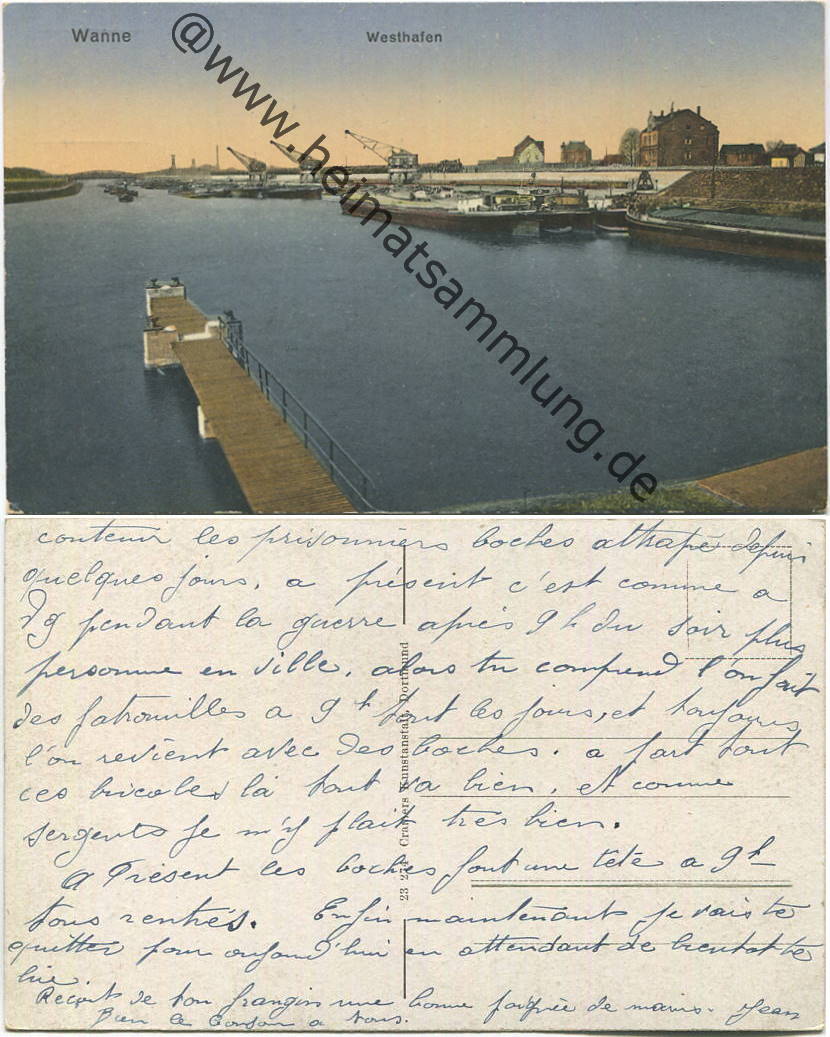 Wanne
Westhafen
@www.heimatsammlung.de
contenir les prisonniers boches attrapé depuis
quelques jours, a présent c'est comme a
pendant la guerre après 9 h du soir plus
personne en ville, alors tu comprend l'on fait
des patrouilles a 9 h tout les jours, et toujours
l'on revient avec des boches. a part tout
ces bricoles la tout va bien, et comme
sergents je m'y plait très bien.
A Présent les boches font une tête a 9 h
tous rentrés. Enfin maintenant je vais te
quitter pour aujourd'hui en attendant de bientot te
lire.
Reçoit de ton frangin une bonne poignée de mains. Jean
Bien le bonjour a tous.
23 274 Cramers Kunstanstalt, Dortmund